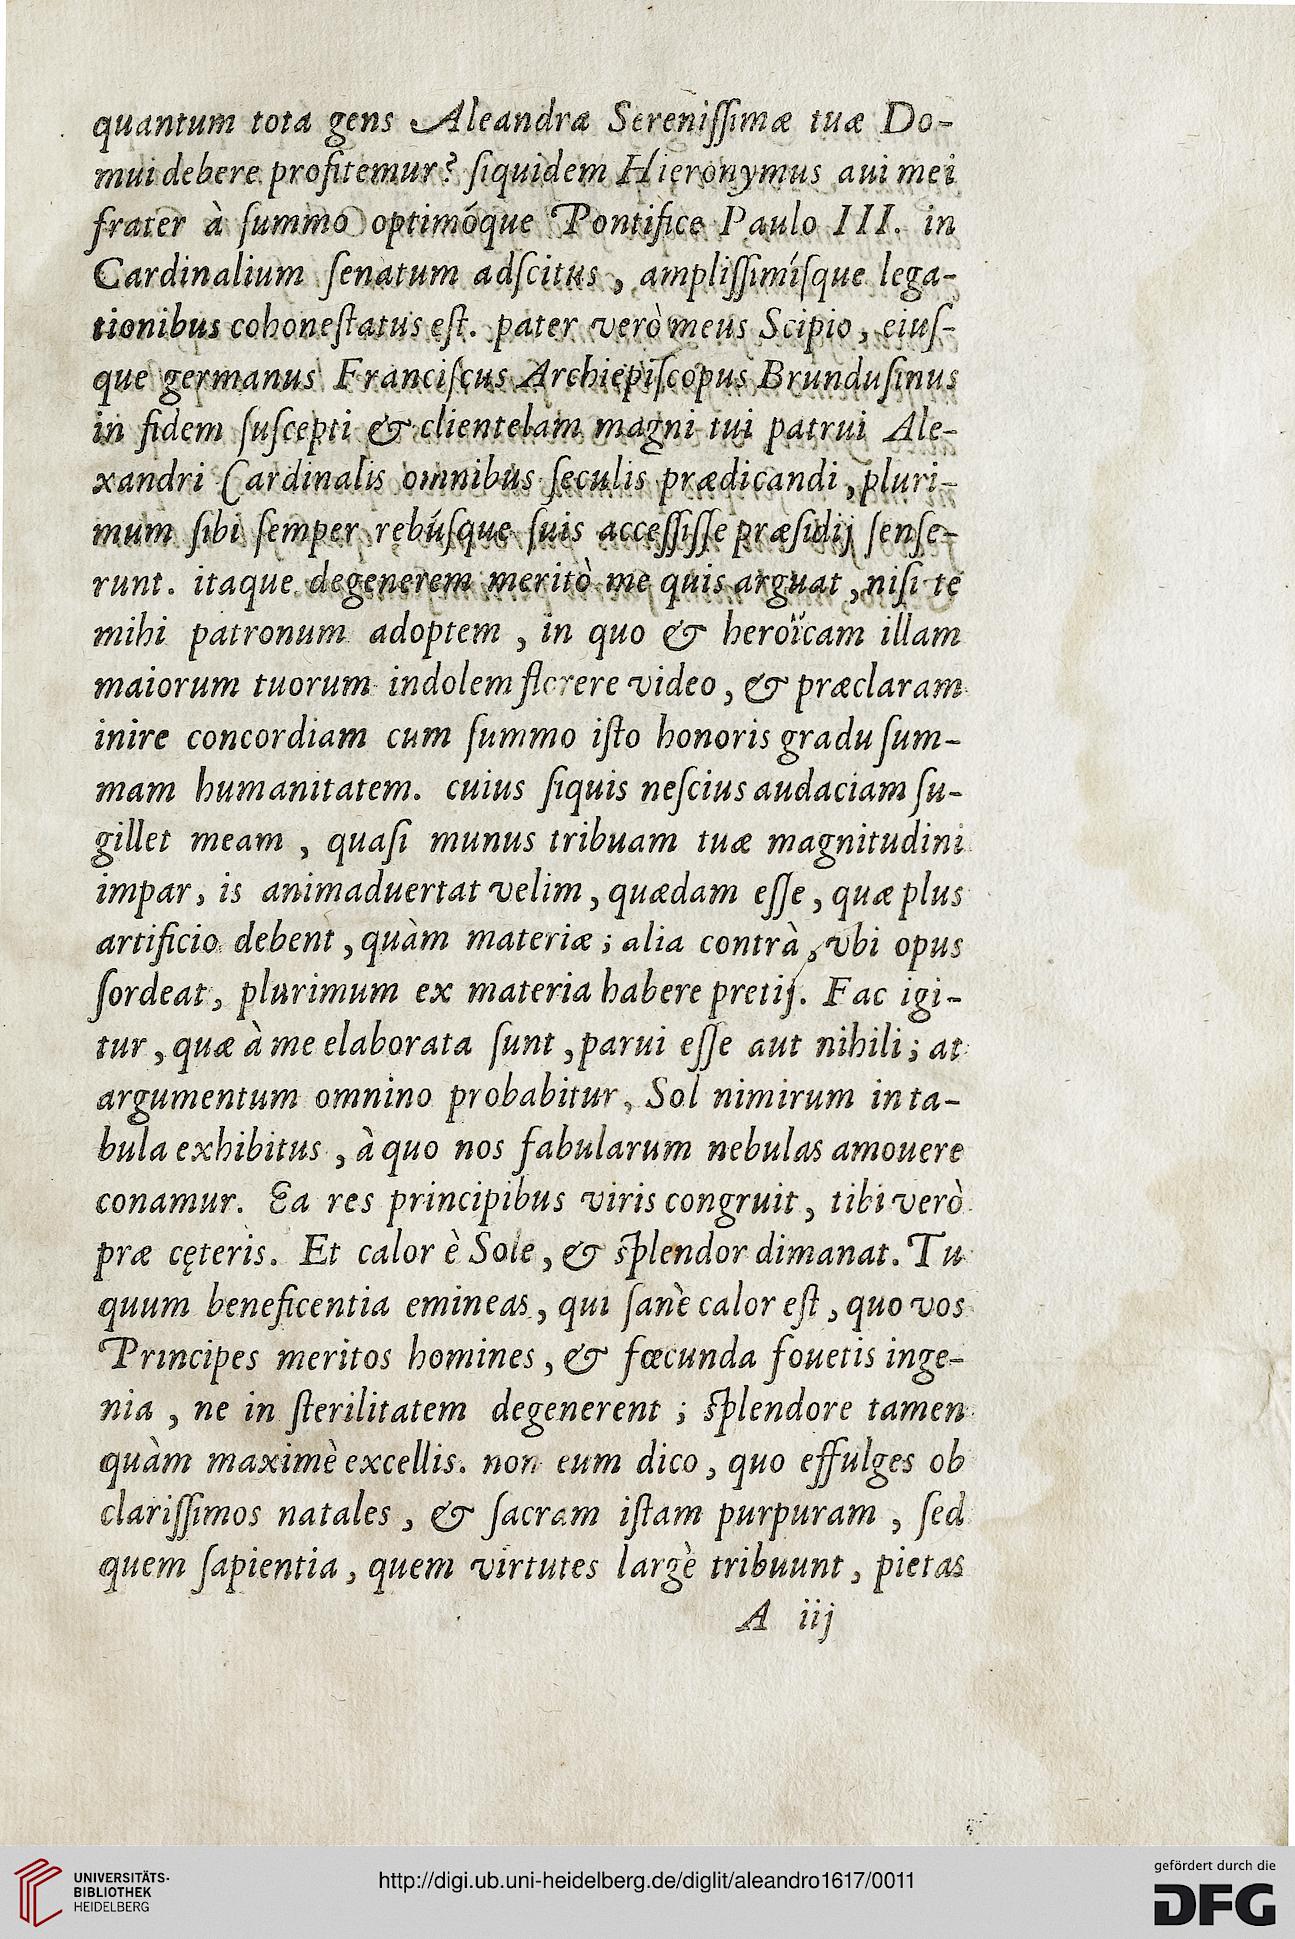 quantum tota gens Aleandra Sereniſſimæ tuæ Do-
mui debere profitemur? ſiquidem Hieronymus aui mei
frater à ſummo optimóque Pontifice Paulo III. in
Cardinalium ſenatum adſcitus, ampliſſimíſque lega-
tionibus cohoneſtatus eſt. pater verò meus Scipio, eiuſ-
que germanus Franciſcus Archiepiſcopus Brunduſinus
in fidem ſuſcepti & clientelam magni tui patrui Ale-
xandri Cardinalis omnibus ſeculis prædicandi, pluri-
mum ſibi ſemper rebúſque ſuis acceſſiſſe præſidij ſenſe-
runt. itaque degenerem meritò me quis arguat, niſi te
mihi patronum adoptem, in quo & heroïcam illam
maiorum tuorum indolem florere video, & præclaram
inire concordiam cum ſummo iſto honoris gradu ſum-
mam humanitatem. cuius ſiquis neſcius audaciam ſu-
gillet meam, quaſi munus tribuam tuæ magnitudini
impar, is animaduertat velim, quædam eſſe, quæ plus
artificio debent, quàm materiæ; alia contrà, vbi opus
ſordeat, plurimum ex materia habere pretij. Fac igi-
tur, quæ à me elaborata ſunt, parui eſſe aut nihili; at
argumentum omnino probabitur, Sol nimirum in ta-
bula exhibitus, à quo nos fabularum nebulas amouere
conamur. Ea res principibus viris congruit, tibi verò
præ cęteris. Et calor è Sole, & ſplendor dimanat. Tu
quum beneficentia emineas, qui ſanè calor eſt, quo vos
Principes meritos homines, & fœcunda fouetis inge-
nia, ne in ſterilitatem degenerent; ſplendore tamen
quàm maximè excellis. non eum dico, quo effulges ob
clariſſimos natales, & ſacram iſtam purpuram, ſed
quem ſapientia, quem virtutes largè tribuunt, pietas
A iij
UNIVERSITÄTS-
BIBLIOTHEK
HEIDELBERG
http://digi.ub.uni-heidelberg.de/diglit/aleandro1617/0011
gefördert durch die
DFG